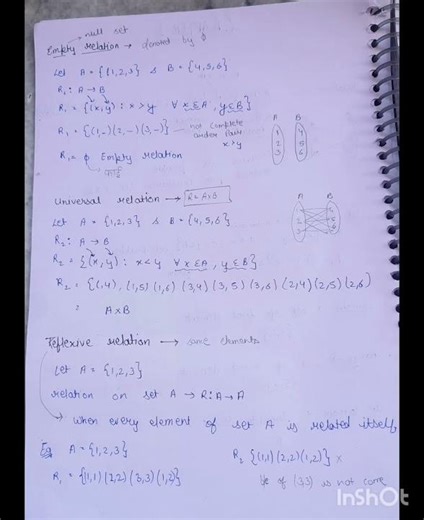 null set
Empty relation → denoted by ϕ
Let A = {1,2,3} & B = {4,5,6}
R₁ : A → B
R₁ = {(x,y) : x > y ∀ x∈A, y∈B}
R₁ = {(1,-)(2,-)(3,-) — not complete
order pair
x > y
R₁ = ϕ Empty relation
A B
1 2 3
4 5 6
Universal relation → R = A×B
Let A = {1,2,3} & B = {4,5,6}
R₂ : A → B
R₂ = {(x,y) : x < y ∀ x∈A, y∈B}
R₂ = {(1,4), (1,5) (1,6) (3,4) (3,5) (3,6) (2,4) (2,5) (2,6)
= A×B
A B
Reflexive relation → same elements
Let A = {1,2,3}
relation on set A → R : A → A
→ when every element of set A is related itself,
Eg A = {1,2,3}
R₁ = {(1,1) (2,2) (3,3) (1,2)}
R₂ {(1,1) (2,2) (1,2)} ×
of (3,3) is not
InShot